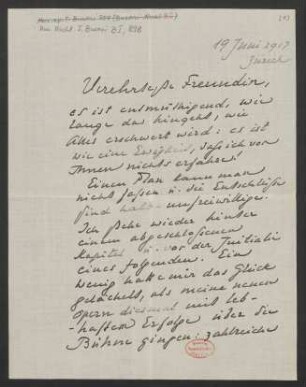 Mus. Nachl. F. Busoni B I, 828
19 Juni 1917
Zürich
Verehrteste Freundin,
es ist entmuthigend, wie
lange das hingeht, wie
Alles erschwert wird: es ist
wie eine Ewigkeit, dass ich von
Ihnen nichts erfahre!
Einen Plan kann man
nicht fassen u. die Entschlüsse
sind halbe unfreiwillige.
Ich stehe wieder hinter
einem abgeschlossenen
Kapitel u. vor der Initiale
eines folgenden. Ein
wenig hatte mir das Glück
gelächelt, als meine neuen
Opern diesmal mit leb-
-haftem Erfolge über die
Bühne gingen: zahlreiche